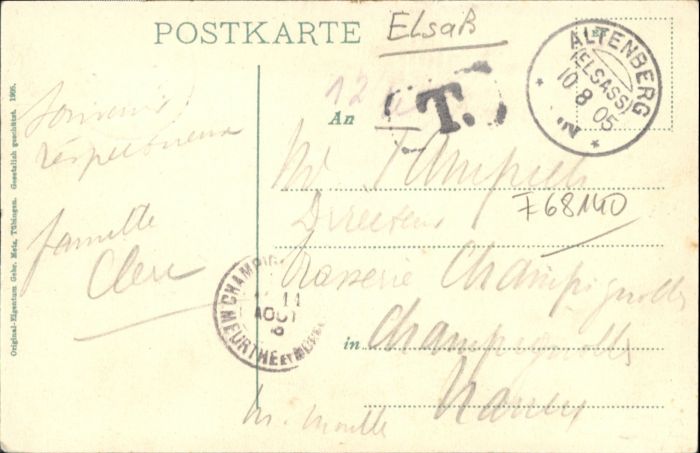 POSTKARTE
Elsaß
ALTENBERG
(ELSASS)
10 8 05
T.
12
An
Souvenir
respectueux
famille
Clerc
Mr
Directeur
Brasserie Champigneulles
in Champigneulles
France
M. Moselle
F68140
CHAMPIG
11
AOUT
MEURTHE ET MOSELLE
Original-Eigentum Gebr. Metz, Tübingen. Gesetzlich geschützt. 1905.